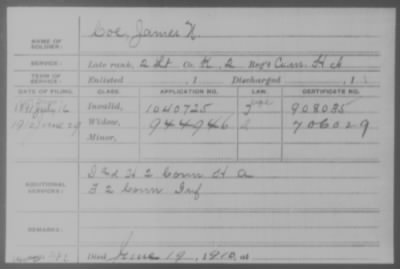 NAME OF SOLDIER: Coe, James N.
SERVICE: Late rank, 2 Lt Co. K, 2 Reg't Conn. H Ch
TERM OF SERVICE: Enlisted , 1 Discharged , 1
DATE OF FILING. CLASS. APPLICATION NO. LAW. CERTIFICATE NO.
1891 July 16 Invalid, 1040725 908035
Widow, 944946 706029
Minor,
ADDITIONAL SERVICES: H 2 Conn H A
F 2 Conn Inf
REMARKS:
Died June 19, 1910, at